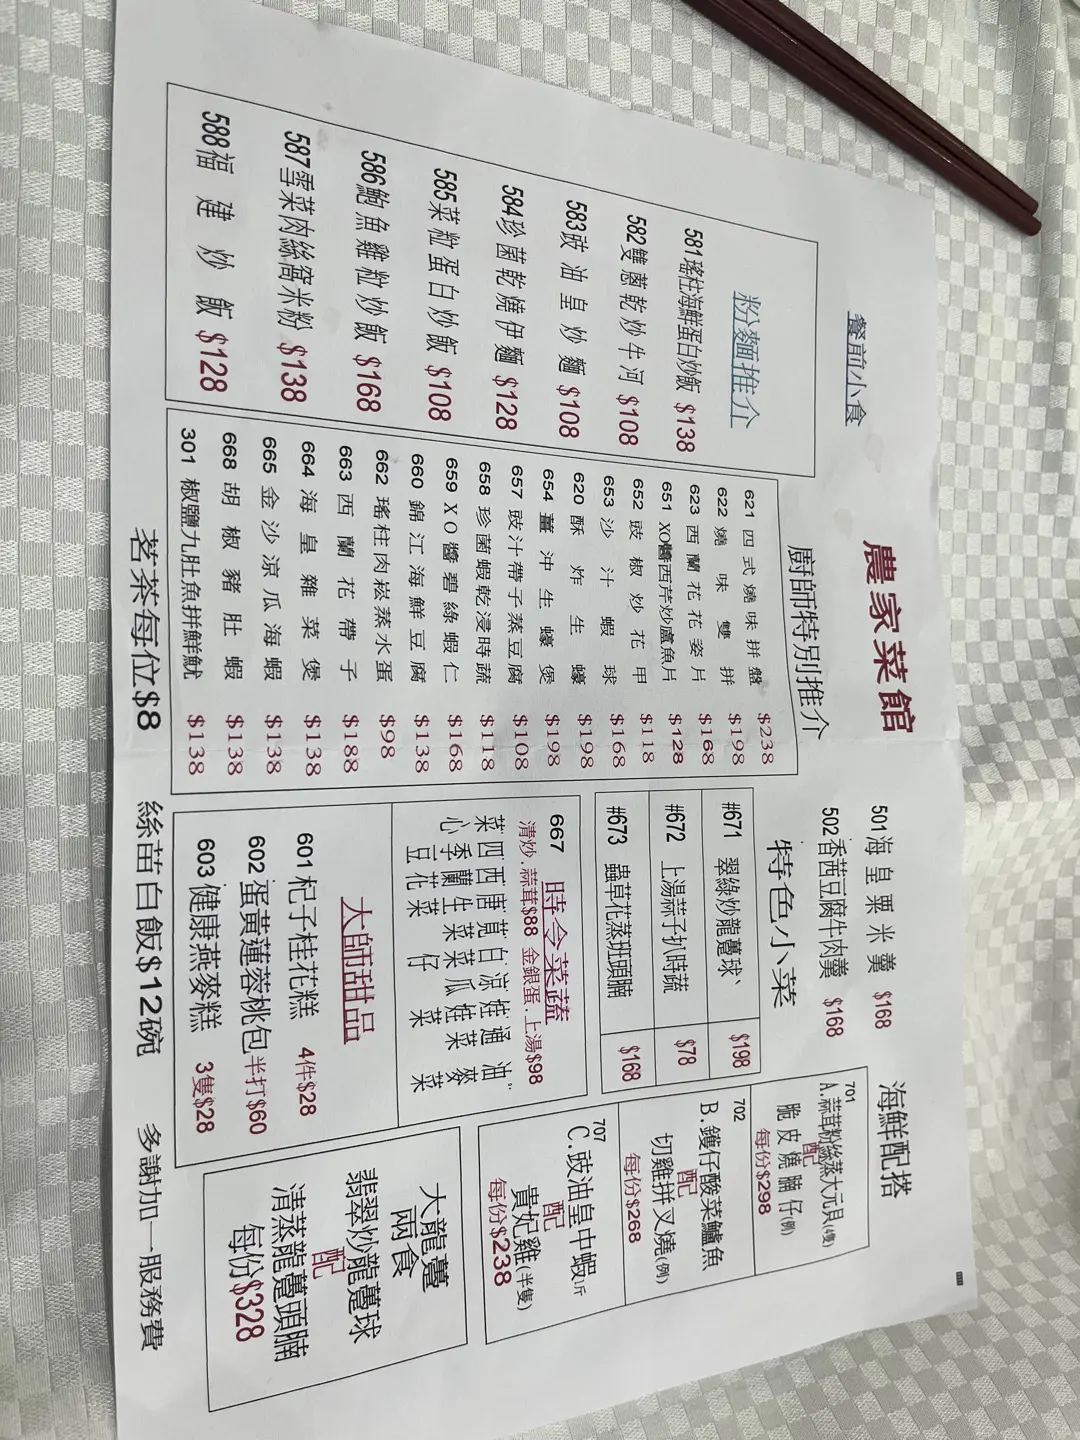 農家菜館
餐前小食
粉麵推介
581瑤柱海鮮蛋白炒飯 $138
582雙蔥乾炒牛河 $108
583豉油皇炒麵 $108
584珍菌乾燒伊麵 $128
585菜粒蛋白炒飯 $108
586鮑魚雞粒炒飯 $168
587雪菜肉絲窩米粉 $138
588福建炒飯 $128
廚師特別推介
621 四式燒味拼盤 $238
622 燒味雙拼 $198
623 西蘭花花姿片 $168
651 XO醬西芹炒鱸魚片 $128
652 豉椒炒花甲 $118
653 沙汁蝦球 $168
620 酥炸生蠔 $198
654 薑沖生蠔煲 $198
657 豉汁帶子蒸豆腐 $108
658 珍菌蝦乾浸時蔬 $118
659 XO醬碧綠蝦仁 $168
660 錦江海鮮豆腐 $138
662 瑤柱肉崧蒸水蛋 $98
663 西蘭花帶子 $188
664 海皇雜菜煲 $138
665 金沙涼瓜海蝦 $138
668 胡椒豬肚蝦 $138
301 椒鹽九肚魚拼鮮魷 $138
501海皇粟米羹 $168
502香茜豆腐牛肉羹 $168
特色小菜
#671 翠綠炒龍躉球、 $198
#672 上湯蒜子扒時蔬 $78
#673 蟲草花蒸班頭腩 $168
667 時令菜蔬
清炒.蒜茸$88 金銀蛋.上湯$98
菜四西唐莧白涼娃通油
心季蘭生菜菜瓜娃菜麥
豆花菜仔菜菜
大師甜品
601杞子桂花糕 4件$28
602蛋黃蓮蓉桃包半打$60
603健康燕麥糕 3隻$28
海鮮配搭
701
A.蒜茸粉絲蒸大元貝(4隻)
配
脆皮燒腩仔(例)
每份$298
702
B.鑊仔酸菜鱸魚
配
切雞拼叉燒(例)
每份$268
707
C.豉油皇中蝦1斤
配
貴妃雞(半隻)
每份$238
大龍躉
兩食
翡翠炒龍躉球
配
清蒸龍躉頭腩
每份$328
茗茶每位$8 絲苗白飯$12碗 多謝加一服務費